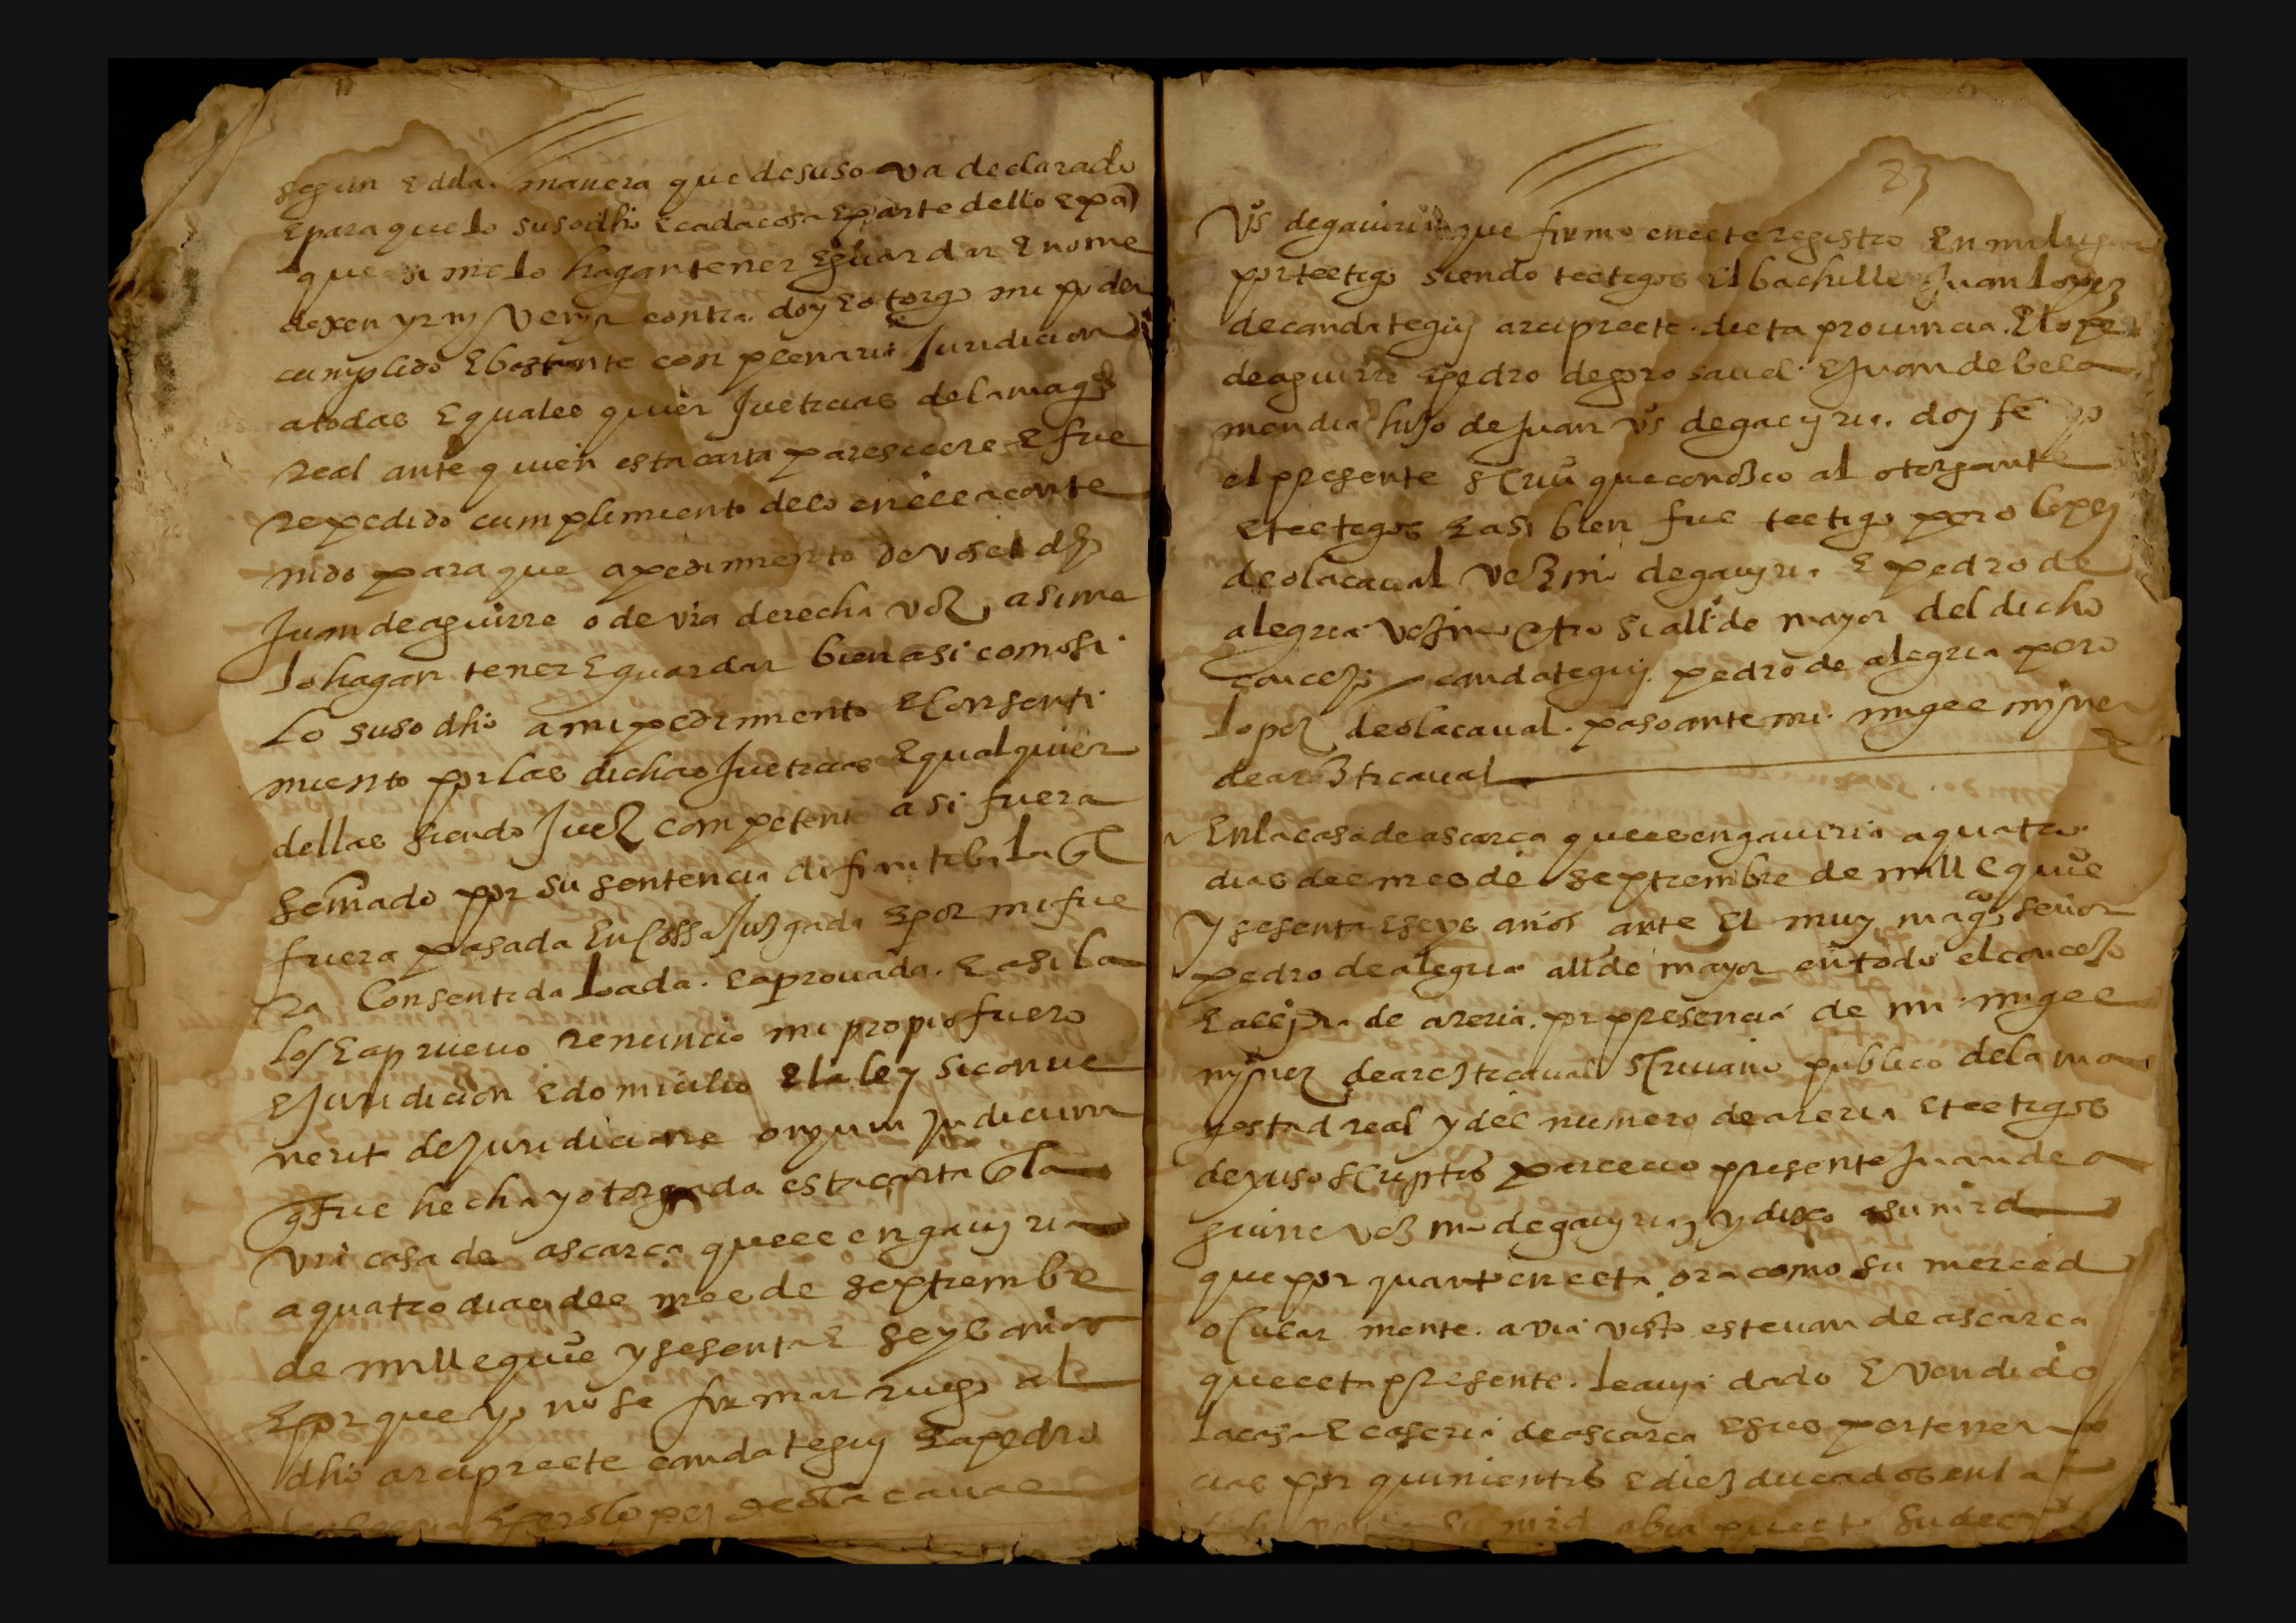 segun e dela manera que desuso va declarado
e para que lo susodho e cada cosa e parte dello e pa
que asi me lo hagan tener e guardar e no me
dexen yr ny venyr contra doy e otorgo mi poder
cumplido e bastante con plenaria Juridicion
a todas e quales quier Justicias de la magd
real ante quien esta carta paresciere e fue
re pedido cumplimiento delo en ella conte
nido para que a pedimiento de vos el dho
Juan de aguirre o de vra derecha voz asi me
lo hagan tener e guardar bien asi como si
lo suso dho a mi pedimiento e consenti
miento por las dichas Justicias e qualquier
dellas siendo Juez competente asi fuera
senado por su sentencia difinitiba la ql
fuera pasada en cossa Juzgada e por mi fue
ra consentida loada e aprouada e asi la
loo e aprueuo renuncio mi propio fuero
e Juridicion e domicilio e la ley si conue
nerit de Juridicione onyun Judicun
q fue hecha y otorgada esta carta en la
vra casa de ascarça que es en gauyria
a quatro dias del mes de septienbre
de mill e quis y sesenta e seys anos
e por que yo no se firmar ruego al
dho arcipreste candateguy e a pedro
de alegria e pero lopez de olacaual
vs de gauiria que firmo en este registro en mi lugar
por testigo siendo testigos el bachille Juan lopez
de candateguy arcipreste desta prouincia e lope
de aguirre e pedro de gorosauel e Juan de bela
mendia hijo de Juan vs de gauyria doy fe yo
el presente scriu que conozco al otorgante
e testigos e asi bien fue testigo pero lopez
de olacaual vezino de gauyria e pedro de
alegria vezino otro si allde mayor del dicho
concejo candateguy pedro de alegria pero
lopez de olacaual paso ante mi migel myner
de arezticaual
En la casa de ascarça que es en gauiria a quatro
dias del mes de septienbre de mill e quis
y sesenta e seys anos ante el muy magco señor
pedro de alegria allde mayor en todo el concejo
e allja de areria por presencia de mi migel
mynez de areztícaual scriuano publico de la ma
gestad real y del numero de areria e testigos
deyuso scriptos parecio presente Juan de a
guirre vezino de gauyria y dixo a su mrd
que por quanto en esta ora como su merced
ocular mente avia visto esteuan de ascarça
que esta presente le auya dado e vendido
la casa e caseria de ascarça e sus pertenen
cias por quinientos e diez ducados en la
su mrd abia puesto su decreto